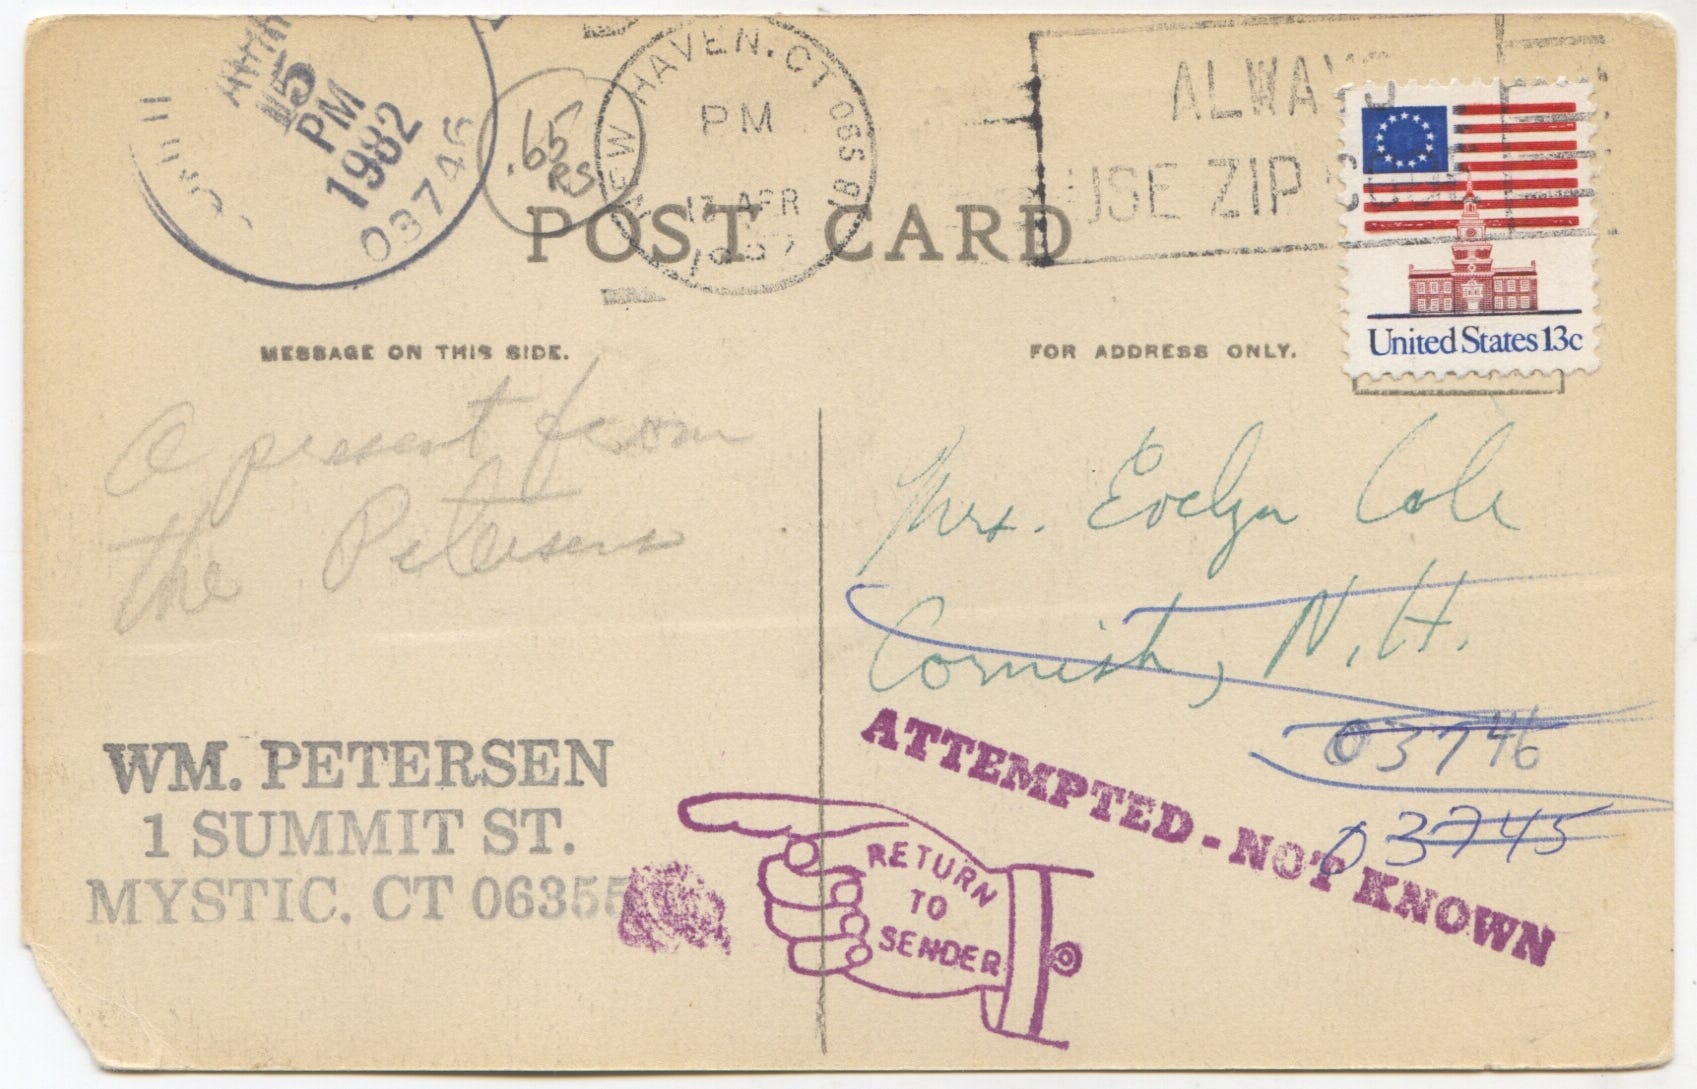 5
PM
1982
03746
.65
RS
NEW HAVEN, CT 065 01
PM
17 APR
ALWAYS
USE ZIP CODE
POST CARD
United States 13c
MESSAGE ON THIS SIDE.
FOR ADDRESS ONLY.
A present from
the Petersens
Mrs. Evelyn Cole
Cornish, N.H.
03746
03745
ATTEMPTED - NOT KNOWN
WM. PETERSEN
1 SUMMIT ST.
MYSTIC, CT 06355
RETURN
TO
SENDER